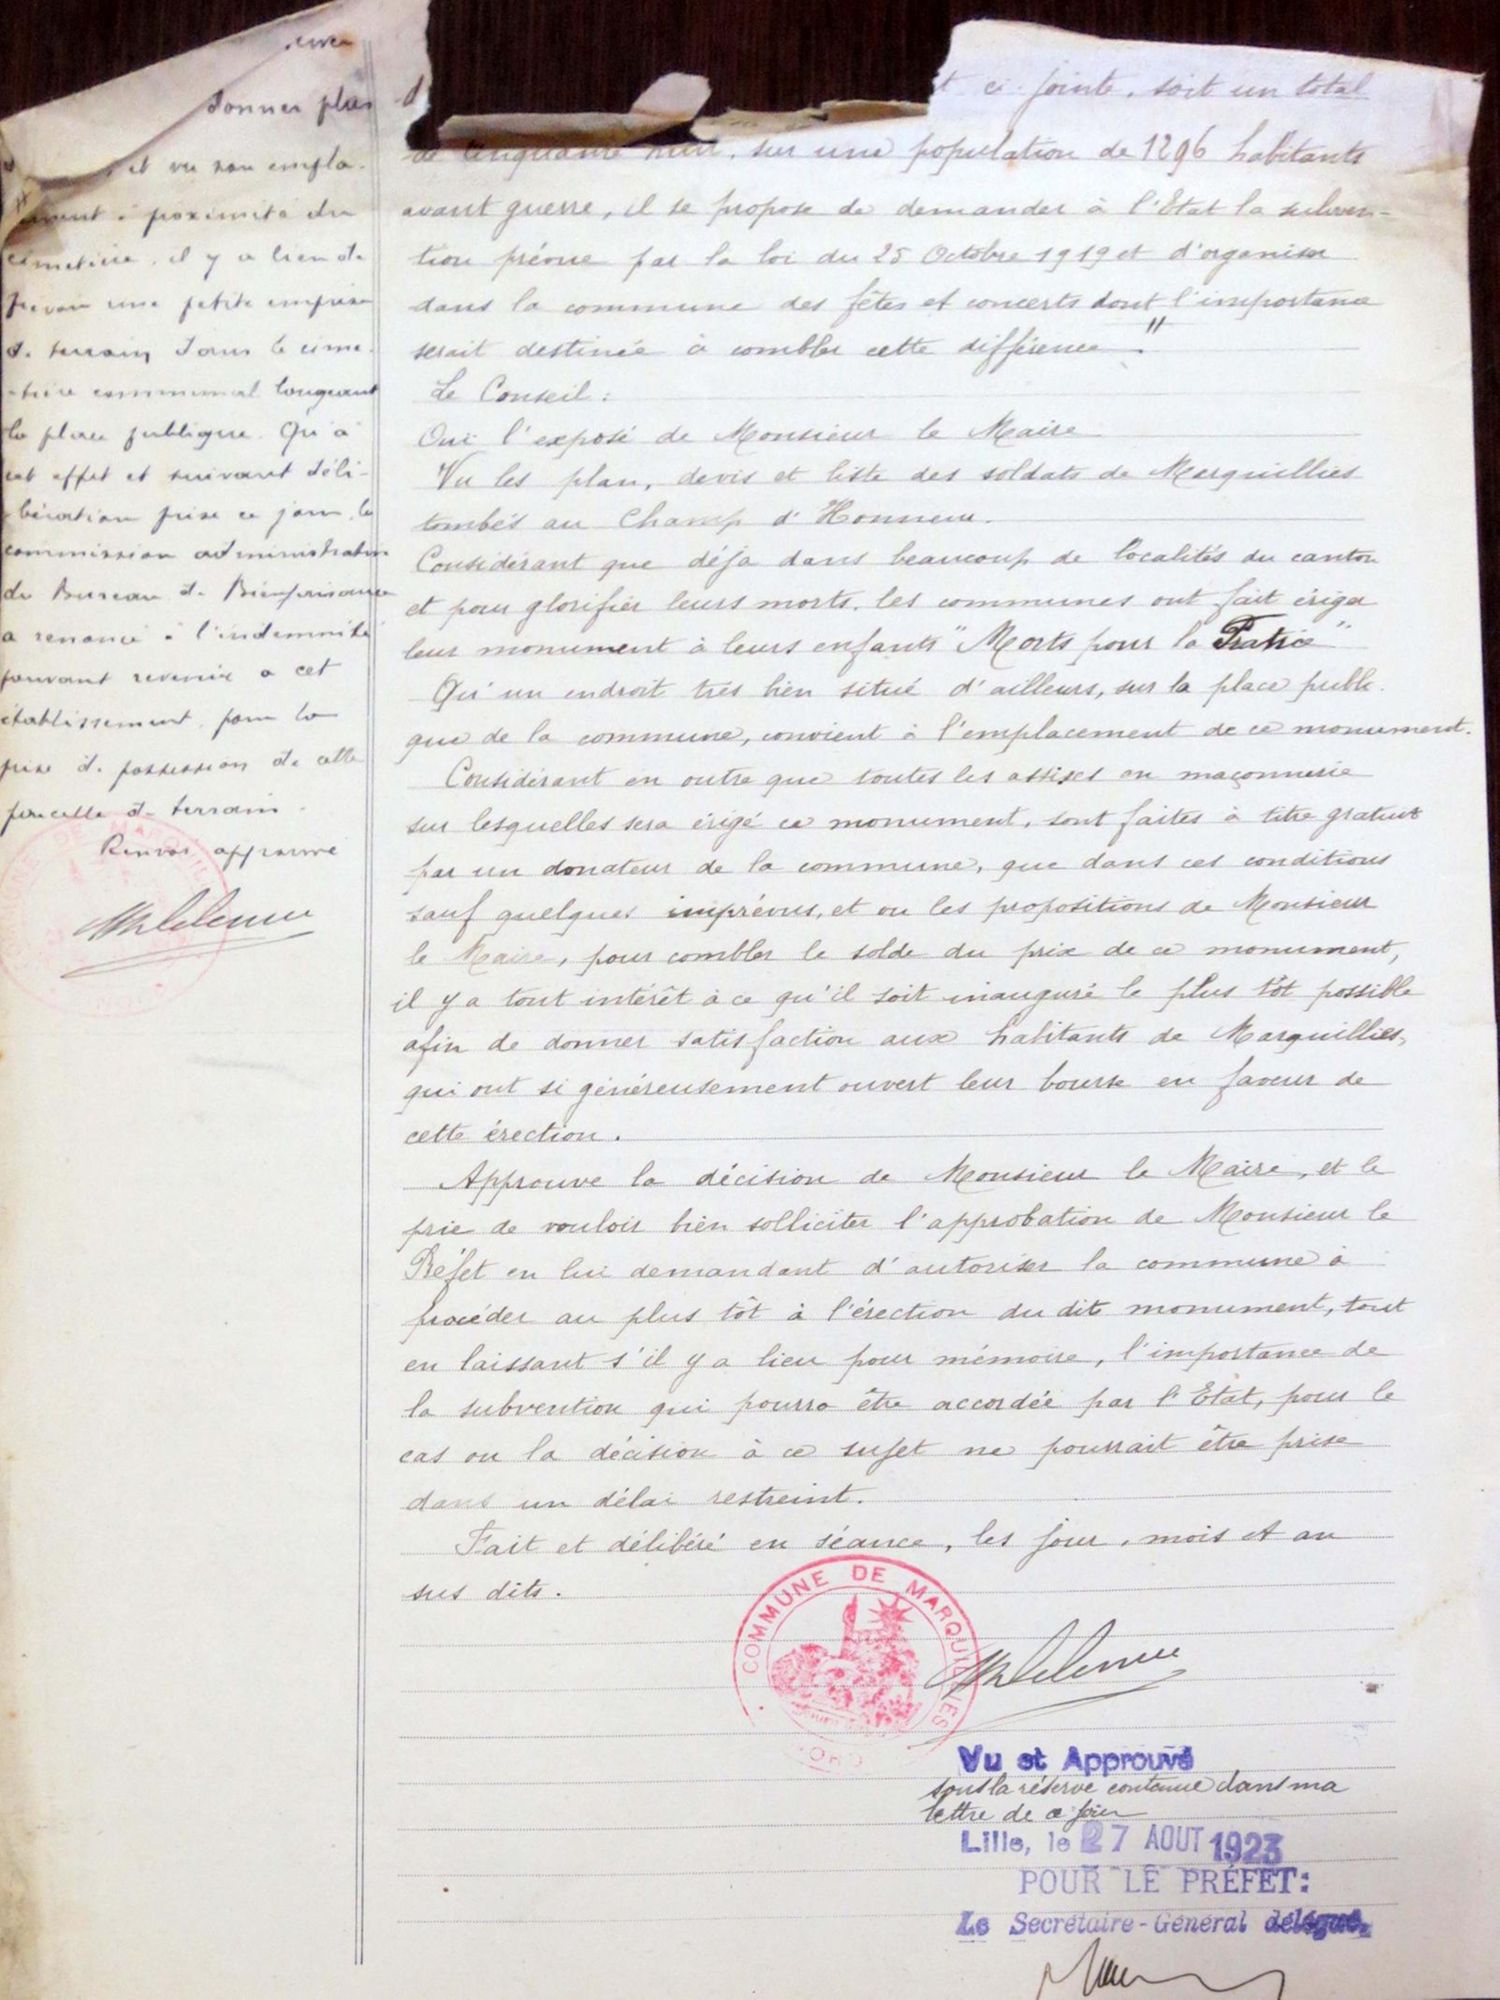 donner plus
et vu son empla-
cement à proximité du
cimetière, il y a lieu de
prévoir une petite emprise
de terrain dans le cime-
-tière communal longeant
la place publique. Qu'à
cet effet et suivant déli-
bération prise ce jour, la
commission administrative
du Bureau de Bienfaisance
a renoncé à l'indemnité
pouvant revenir à cet
établissement, pour la
prise de possession de cette
parcelle de terrain.
Renvoi approuvé
ci-jointe, soit un total
de cinquante huit, sur une population de 1296 habitants
avant guerre, il se propose de demander à l'Etat la subven-
tion prévue par la loi du 25 Octobre 1919 et d'organiser
dans la commune des fêtes et concerts dont l'importance
serait destinée à combler cette différence."
Le Conseil:
Oui l'exposé de Monsieur le Maire
Vu les plan, devis et liste des soldats de Marquillies
tombés au Champ d'Honneur.
Considérant que déjà dans beaucoup de localités du canton
et pour glorifier leurs morts, les communes ont fait ériger
leur monument à leurs enfants "Morts pour la Patrie"
Qu'un endroit très bien situé d'ailleurs, sur la place publi-
que de la commune, convient à l'emplacement de ce monument.
Considérant en outre que toutes les assises en maçonnerie
sur lesquelles sera érigé ce monument, sont faites à titre gratuit
par un donateur de la commune, que dans ces conditions
sauf quelques imprévus, et vu les propositions de Monsieur
le Maire, pour combler le solde du prix de ce monument,
il y a tout intérêt à ce qu'il soit inauguré le plus tôt possible
afin de donner satisfaction aux habitants de Marquillies,
qui ont si généreusement ouvert leur bourse en faveur de
cette érection.
Approuve la décision de Monsieur le Maire, et le
prie de vouloir bien solliciter l'approbation de Monsieur le
Préfet en lui demandant d'autoriser la commune à
procéder au plus tôt à l'érection du dit monument, tout
en laissant s'il y a lieu pour mémoire, l'importance de
la subvention qui pourra être accordée par l'Etat, pour le
cas ou la décision à ce sujet ne pourrait être prise
dans un délai restreint.
Fait et délibéré en séance, les jour, mois et an
sus dits.
COMMUNE DE MARQUILLIES
NORD
Vu et Approuvé
sous la réserve contenue dans ma
lettre de ce jour
Lille, le 27 AOUT 1923
POUR LE PRÉFET:
Le Secrétaire-Général délégué,